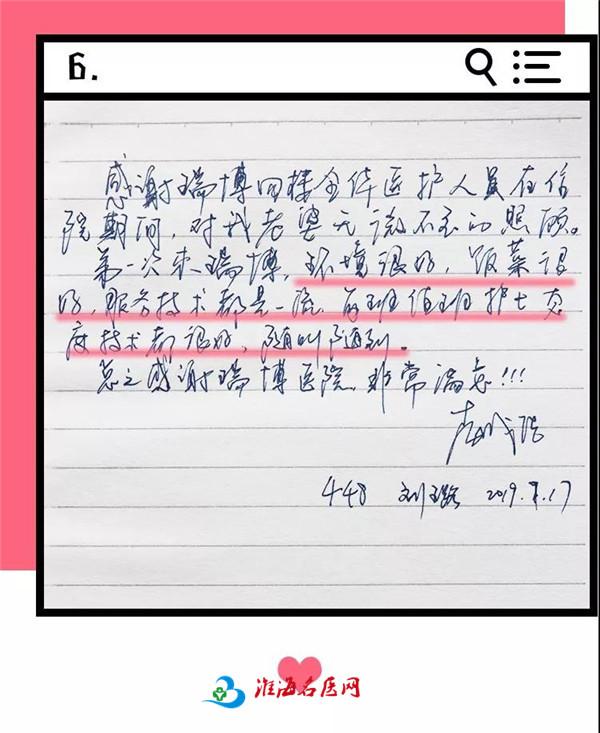 6.
感谢瑞博四楼全体医护人员在住
院期间，对我老婆无微不至的照顾。
第一次来瑞博，环境很好，饭菜很
好，服务技术都是一流，每班值班护士态
度技术都很好，随叫随到。
总之感谢瑞博医院，非常满意!!!
448 刘璐 2019.7.17
淮海名医网